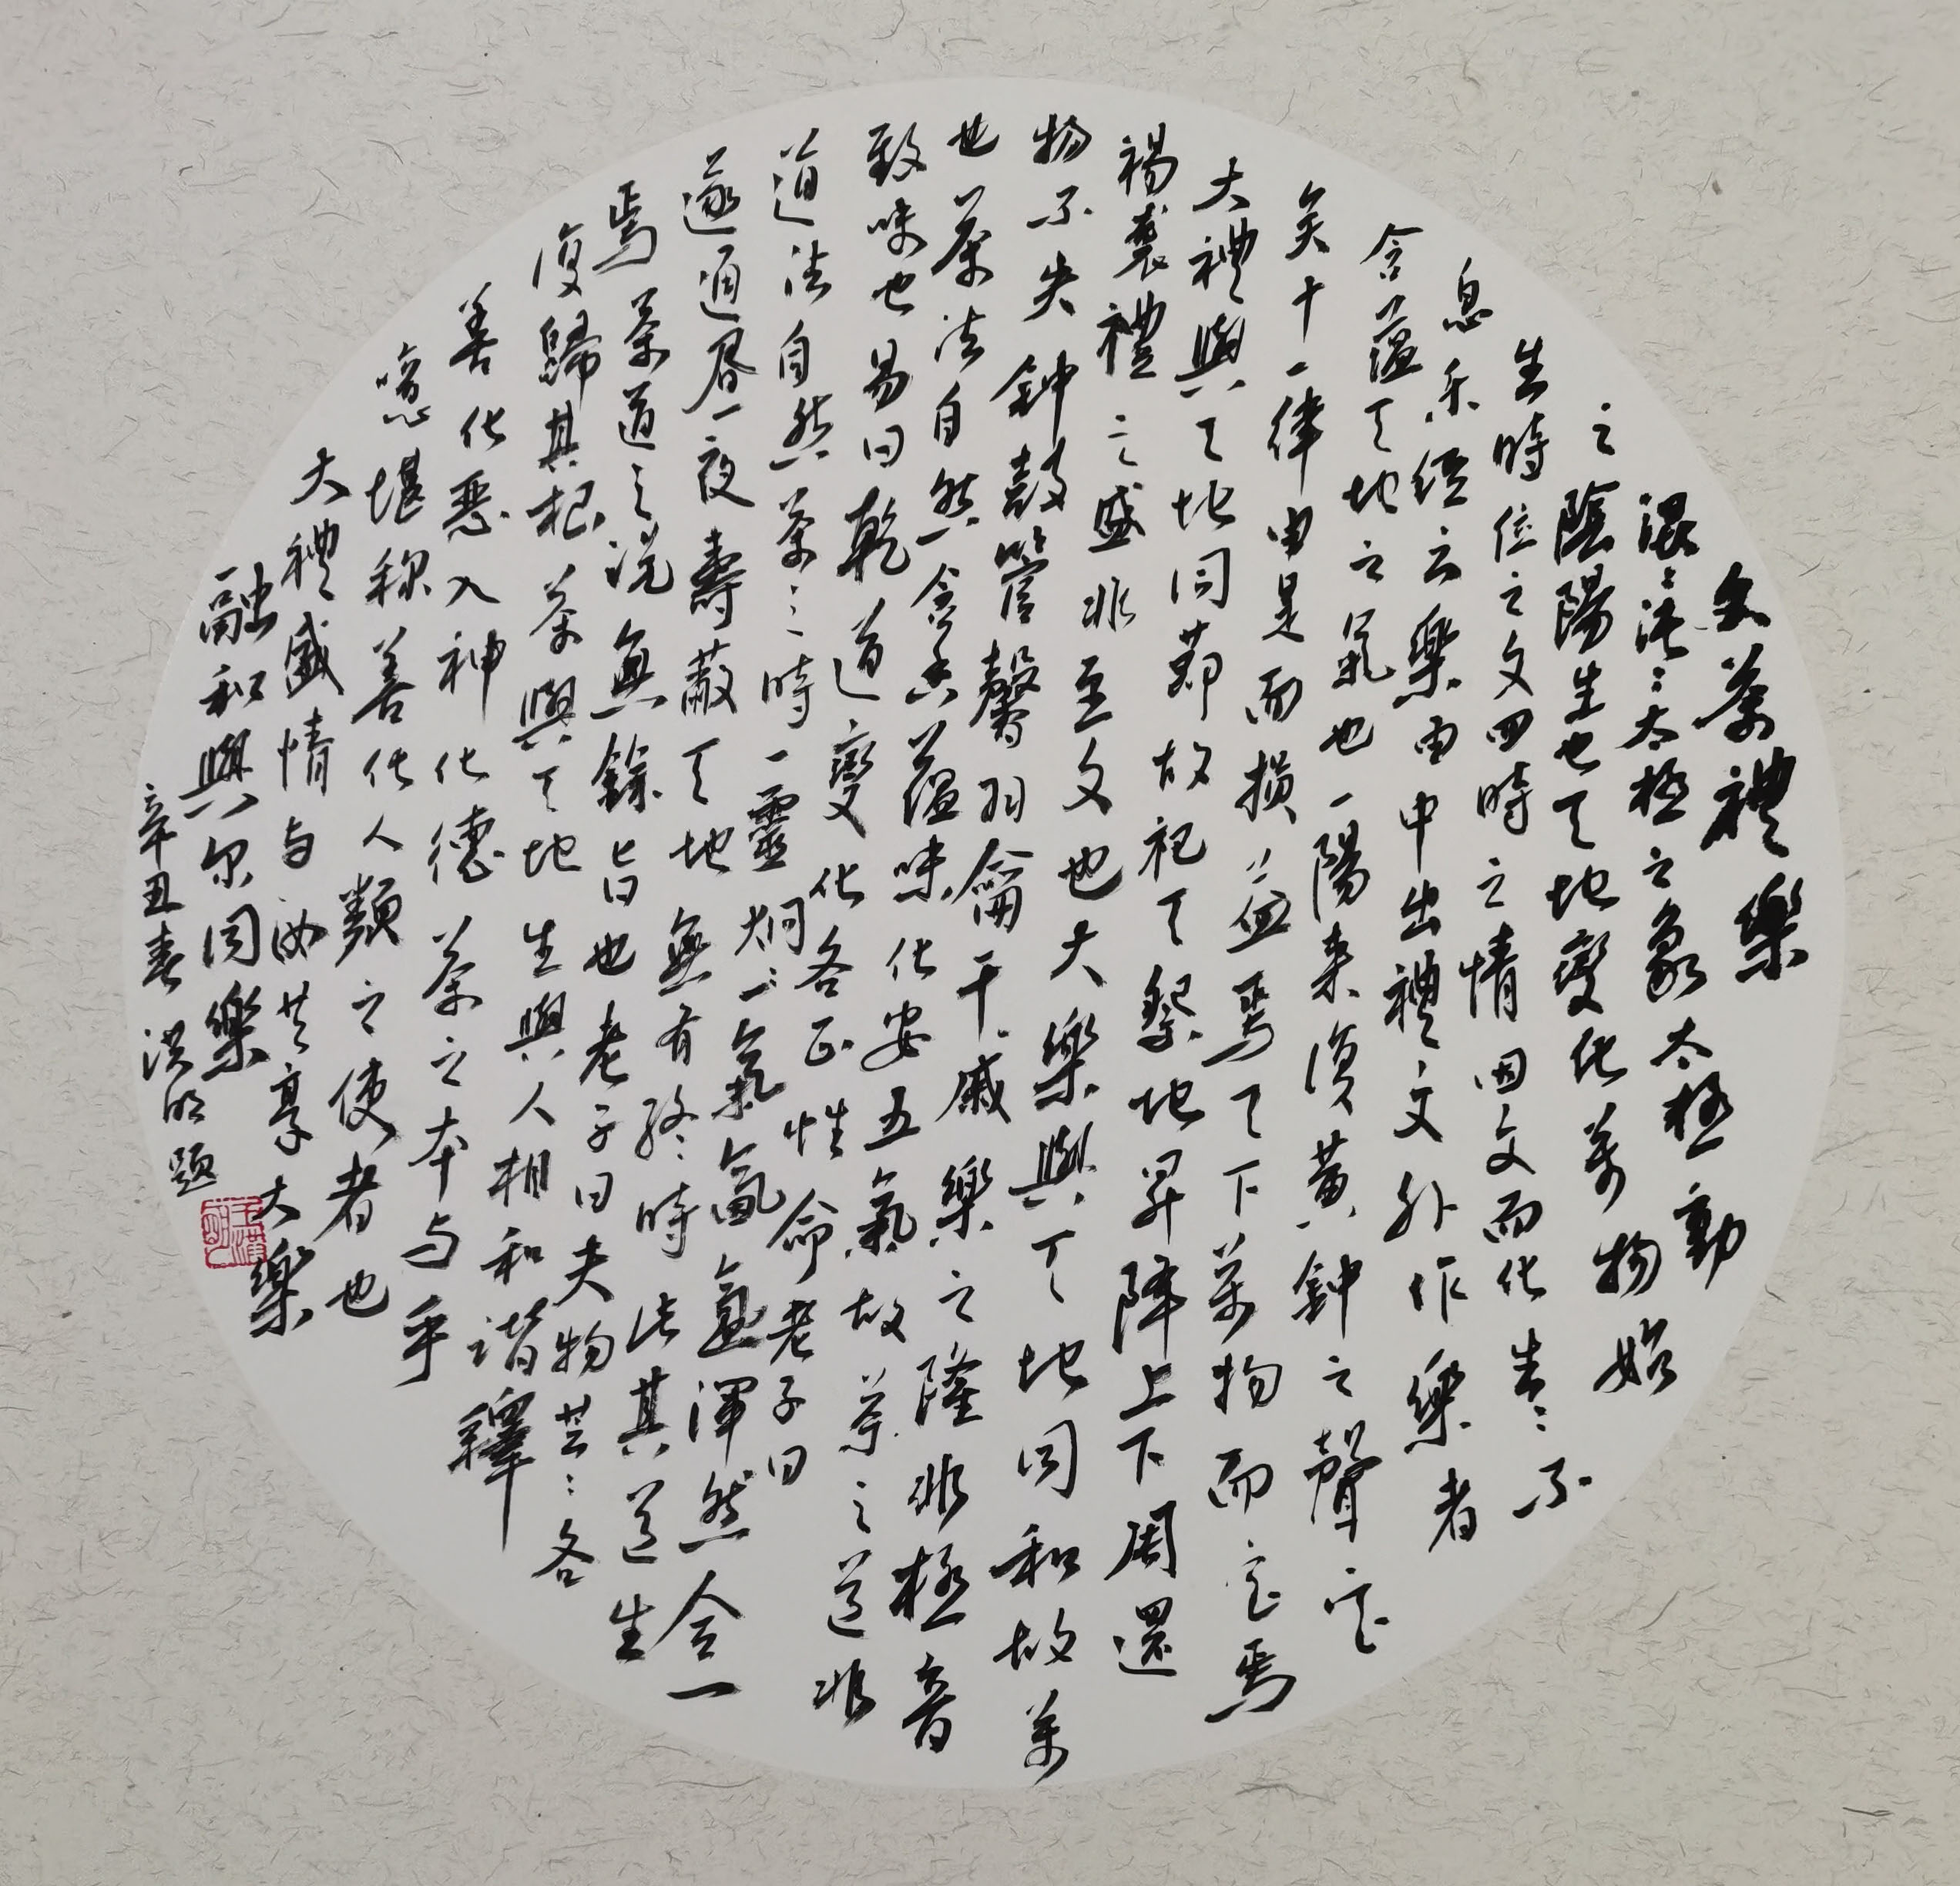 茶禮樂
混混沌沌太極之象太極動
之陰陽生也天地變化萬物始
生時位之文四時之情因文而化生生不
息樂經云樂由中出禮文外作樂者
含蘊天地之氣也一陽來復黃鐘之聲定
矣十一律由是而損益焉天下萬物而定焉
大禮與天地同節故祀天祭地昇降上下周還
裼襲禮之盛非至文也大樂與天地同和故萬
物不失鐘鼓管磬羽籥干戚樂之隆非極音
也茶法自然含蘊味化安五氣故茶之道非
致味也易曰乾道變化各正性命老子曰
道法自然茶之時一靈炯炯氣氤氳渾然合一
遂通晝夜壽蔽天地無有終時法其道生
焉茶道之說無餘旨也老子曰夫物芸芸各
復歸其根茶與天地生與人相和諧釋
善化惡入神化德茶之本與乎
噫堪稱善化人類之使者也
大禮盛情与汝共享大樂
融和與尔同樂
辛丑春洪明題